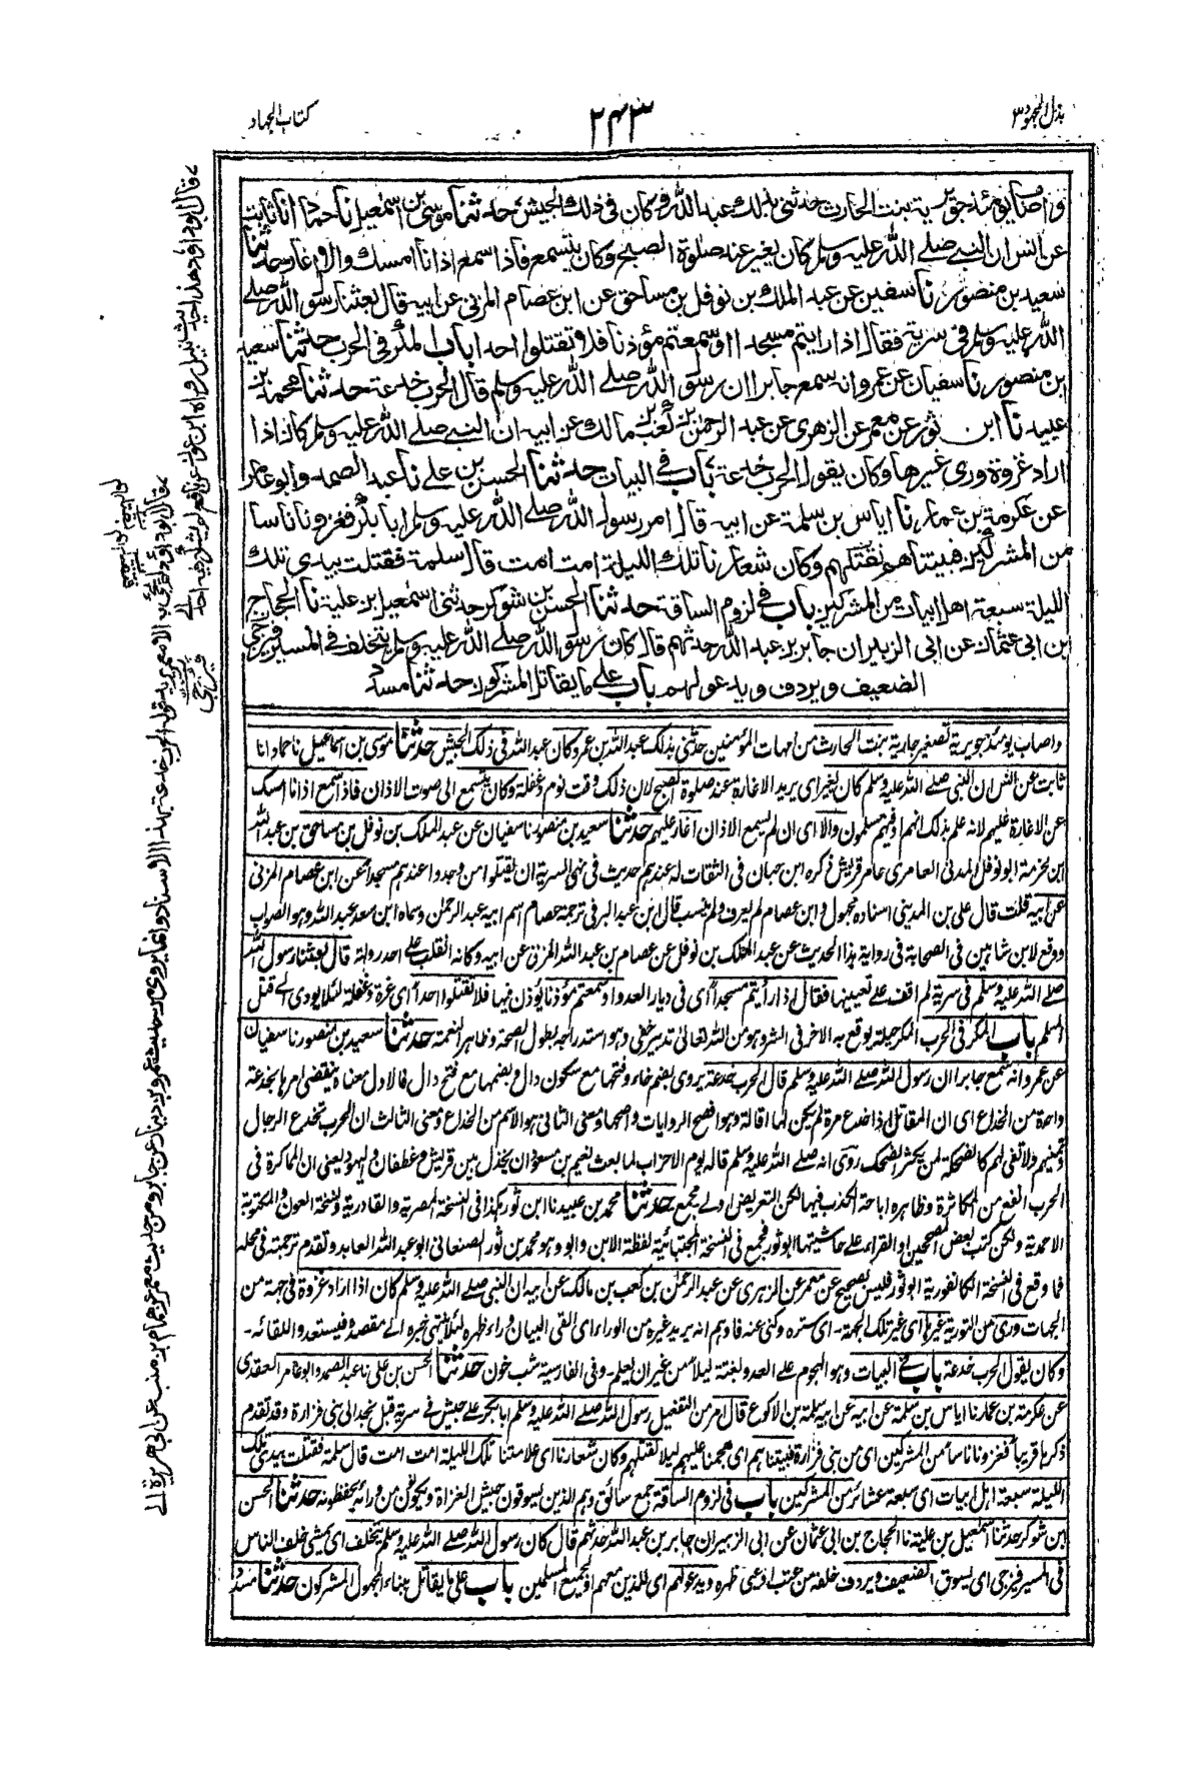 بذل المجهود ٣
٢٤٣
كتاب الجهاد
واصاب يومئذ جويرية بنت الحارث حدثنى بذلك عبد الله وكان فى ذلك الجيش حدثنا موسى بن اسمعيل نا حماد انا ثابت
عن انس ان النبى صلى الله عليه وسلم كان يغير عند صلوة الصبح وكان يتسمع فاذا سمع اذانا امسك والا اغار حدثنا
سعيد بن منصور نا سفين عن عبد الملك بن نوفل بن مساحق عن ابن عصام المزنى عن ابيه قال بعثنا رسول الله صلى
الله عليه وسلم فى سرية فقال اذا رايتم مسجدا او سمعتم مؤذنا فلا تقتلوا احدا باب المكر فى الحرب حدثنا سعيد
ابن منصور نا سفيان عن عمرو انه سمع جابرا ان رسول الله صلى الله عليه وسلم قال الحرب خدعة حدثنا محمد بن
عبيد نا ابن ثور عن معمر عن الزهرى عن عبد الرحمن بن كعب بن مالك عن ابيه ان النبى صلى الله عليه وسلم كان اذا
اراد غزوة ورى غيرها وكان يقول الحرب خدعة باب فى البيات حدثنا الحسن بن على نا عبد الصمد وابو عامر
عن عكرمة بن عمار نا اياس بن سلمة عن ابيه قال امر رسول الله صلى الله عليه وسلم ابا بكر فغزونا ناسا
من المشركين فبيتناهم نقتلهم وكان شعارنا تلك الليلة امت امت قال سلمة فقتلت بيدى تلك
الليلة سبعة اهل ابيات من المشركين باب فى لزوم الساقة حدثنا الحسن بن شوكر حدثنى اسمعيل بن علية نا الحجاج
بن ابى عثمان عن ابى الزبير ان جابر بن عبد الله حدثهم قال كان رسول الله صلى الله عليه وسلم يتخلف فى المسير فيزجى
الضعيف ويردف ويدعو لهم باب على ما يقاتل المشركون حدثنا مسدد
واصاب يومئذ جويرية تصغير جارية بنت الحارث من امهات المؤمنين حدثنى بذلك عبد الله بن عمر وكان عبد الله فى ذلك الجيش حدثنا موسى بن اسماعيل نا حماد انا
ثابت عن انس ان النبى صلى الله عليه وسلم كان يغير اى يريد الاغارة عند صلوة الصبح لان ذلك وقت نوم وغفلة وكان يتسمع الى صوت الاذان فاذا سمع اذانا امسك
عن الاغارة عليهم لانه علم بذلك انهم او فيهم مسلمون والا اى ان لم يسمع الاذان اغار عليهم حدثنا سعيد بن منصور نا سفيان عن عبد الملك بن نوفل بن مساحق بن عبد الله
ابن مخرمة ابو نوفل المدنى العامرى عامر قريش ذكره ابن حبان فى الثقات له عندهم حديث فى نهى السرية ان يقتلوا من وجدوا عندهم مسجدا عن ابن عصام المزنى
عن ابيه قلت قال على بن المدينى اسناده مجهول وابن عصام لم يعرف ولم ينسب قال ابن عبد البر فى ترجمة عصام اسم ابيه عبد الرحمن وسماه ابن سعد عبد الله وهو الصواب
ووقع لابن شاهين فى الصحابة فى رواية هذا الحديث عن عبد الملك بن نوفل عن عصام بن عبد الله المزنى عن ابيه وكانه انقلب على احد رواته قال بعثنا رسول الله
صلى الله عليه وسلم فى سرية لم اقف على تعيينها فقال اذا رأيتم مسجدا اى فى ديار العدو او سمعتم مؤذنا يؤذن فيها فلا تقتلوا احدا اى غرة وغفلة لئلا يودى الى قتل
المسلم باب المكر فى الحرب المكر حيلة يوقع به الآخر فى الشر وهو من الله تعالى تدبير خفى وهو استدراجه بطول الصحة وظاهر النعمة حدثنا سعيد بن منصور نا سفيان
عن عمرو انه سمع جابرا ان رسول الله صلى الله عليه وسلم قال الحرب خدعة يروى بضم خاء وفتحها مع سكون دال وبضمها مع فتح دال فالاول معناه ينقضى امرها بخدعة
واحدة من الخداع اى ان المقاتل اذا خدع مرة لم يكن لها اقالة وهو افصح الروايات واصحها ومعنى الثانى هو الاسم من الخداع ومعنى الثالث ان الحرب تخدع الرجال
وتمنيهم ولا تفى لهم كالضحكة لمن يكثر الضحك روى انه صلى الله عليه وسلم قاله يوم الاحزاب لما بعث نعيم بن مسعود ان يخذل بين قريش وغطفان واليهود يعنى ان المماكرة فى
الحرب انفع من المكاثرة وظاهره اباحة الكذب فيها لكن التعريض اولى مجمع حدثنا محمد بن عبيد نا ابن ثور هكذا فى النسخة المصرية والقادرية ونسخة العون والمكتوبة
الاحمدية ولكن كتب بعض المصححين او القراء على حاشيتها ابو ثور فجمع فى النسخة المجتبائية لفظة الابن وابو وهو محمد بن ثور الصنعانى ابو عبد الله العابد وتقدم ترجمته فى محله
فما وقع فى النسخة الكانفورية ابو ثور فليس بصحيح عن معمر عن الزهرى عن عبد الرحمن بن كعب بن مالك عن ابيه ان النبى صلى الله عليه وسلم كان اذا اراد غزوة فى جهة من
الجهات ورى من التورية غيرها اى غير تلك الجهة - اى ستره وكنى عنه واوهم انه يريد غيره من الوراء اى القى البيان وراء ظهره لئلا ينتهى خبره الى مقصده فيستعدوا للقائه -
وكان يقول الحرب خدعة باب فى البيات وهو الهجوم على العدو بغتة ليلا من غير ان يعلم - وفى الفارسية شب خون حدثنا الحسن بن على نا عبد الصمد وابو عامر العقدى
عن عكرمة بن عمار نا اياس بن سلمة عن ابيه عن ابيه سلمة بن الاكوع قال امر من التفعيل رسول الله صلى الله عليه وسلم ابا بكر على جيش فى سرية قبل نجد الى بنى فزارة وقد تقدم
ذكرها قريبا فغزونا ناسا من المشركين اى من بنى فزارة فبيتناهم اى هجمنا عليهم ليلا نقتلهم وكان شعارنا اى علامتنا تلك الليلة امت امت قال سلمة فقتلت بيدى تلك
الليلة سبعة اهل ابيات اى سبعة عشائر من المشركين باب فى لزوم الساقة جمع سائق وهم الذين يسوقون جيش الغزاة ويكونون من ورائه يحفظونه حدثنا الحسن
ابن شوكر حدثنا اسمعيل بن علية نا الحجاج بن ابى عثمان عن ابى الزبير ان جابر بن عبد الله حدثهم قال كان رسول الله صلى الله عليه وسلم يتخلف اى يمشى خلف الناس
فى المسير فيزجى اى يسوق الضعيف ويردف خلفه من عتب اذ عى ظهره ويدعو لهم اى للذين معهم او لجميع المسلمين باب على ما يقاتل ببناء المجهول المشركون حدثنا مسدد
قال ابو داود هذا حديث نبيل رواه ابن عون عن نافع لم يشركه فيه احد
قال ابو داود لم يجئ به الا معمر يريد قوله الحرب خدعة بهذا الاسناد وانما يروى من حديث عمرو بن دينار عن جابر ومن حديث معمر عن همام بن منبه عن ابى هريرة